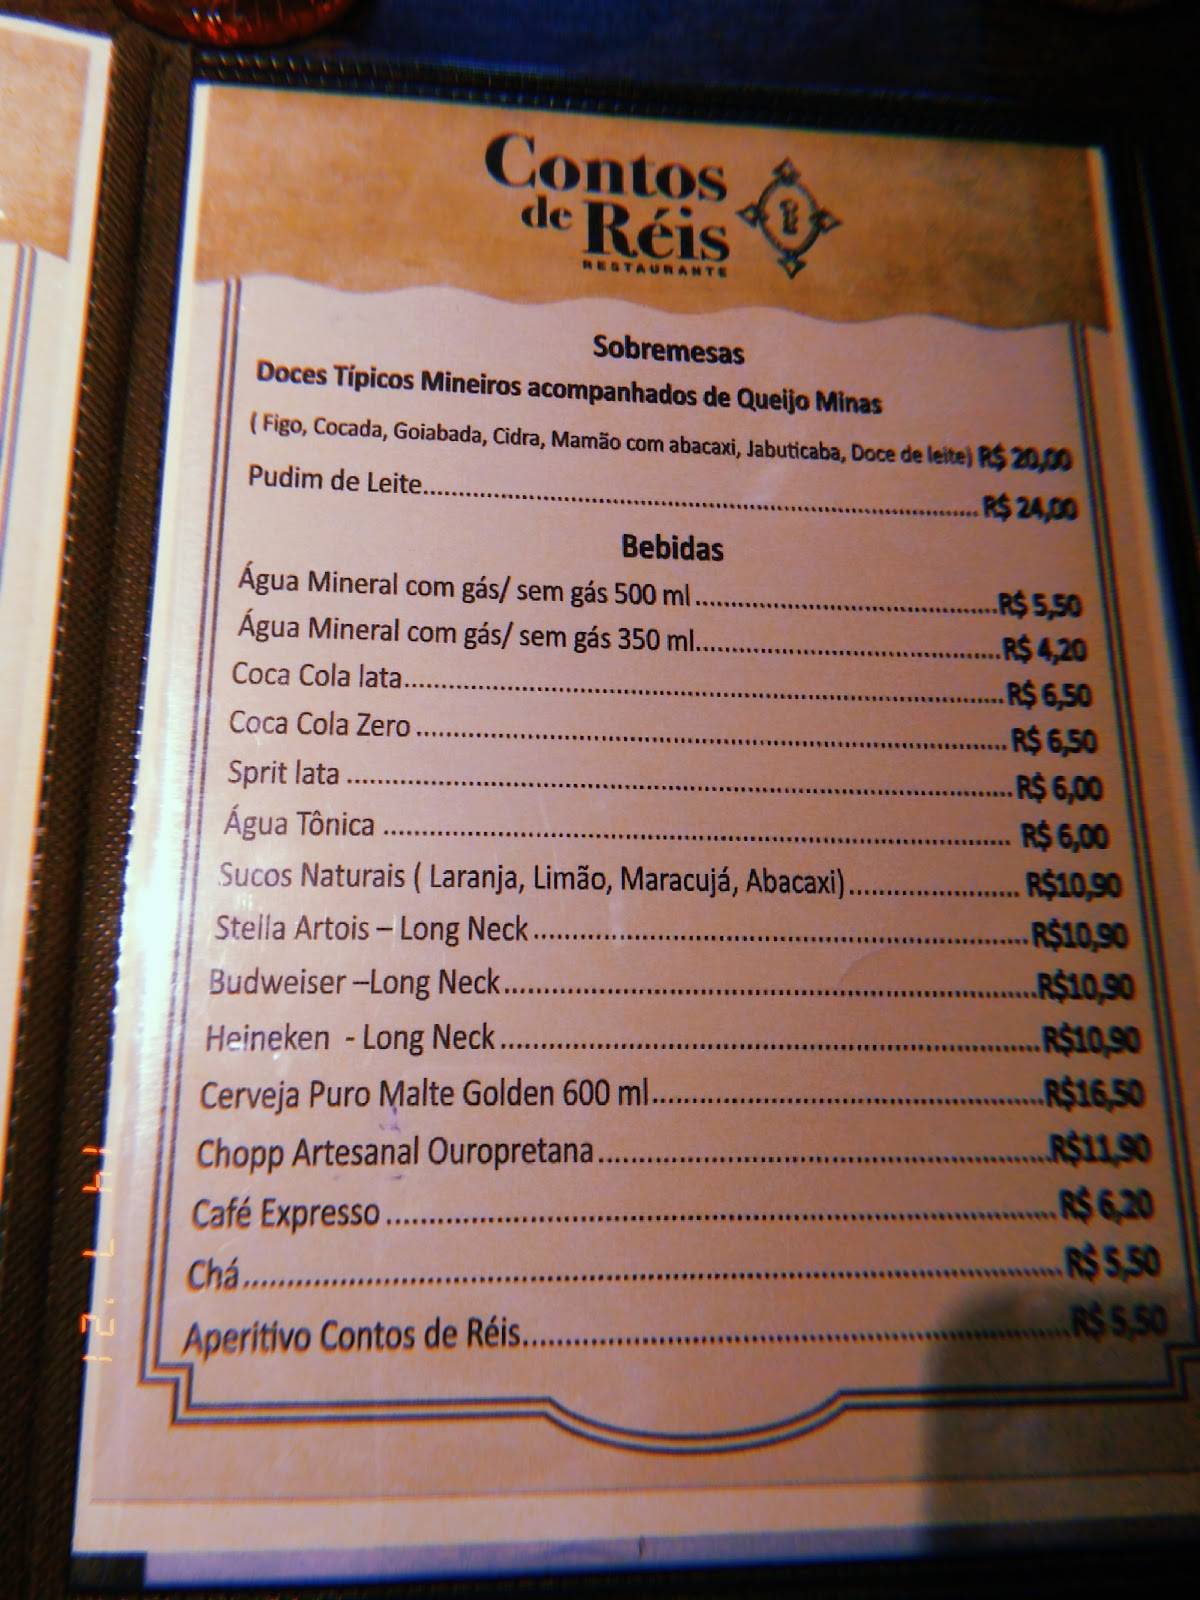 Contos
de Réis
RESTAURANTE
Sobremesas
Doces Típicos Mineiros acompanhados de Queijo Minas
( Figo, Cocada, Goiabada, Cidra, Mamão com abacaxi, Jabuticaba, Doce de leite) R$ 20,00
Pudim de Leite.......................................................................... R$ 24,00
Bebidas
Água Mineral com gás/ sem gás 500 ml ........................................ R$ 5,50
Água Mineral com gás/ sem gás 350 ml........................................ R$ 4,20
Coca Cola lata............................................................................... R$ 6,50
Coca Cola Zero .............................................................................. R$ 6,50
Sprit lata ........................................................................................ R$ 6,00
Água Tônica ................................................................................... R$ 6,00
Sucos Naturais ( Laranja, Limão, Maracujá, Abacaxi)...................... R$10,90
Stella Artois – Long Neck ................................................................ R$10,90
Budweiser –Long Neck.................................................................... R$10,90
Heineken - Long Neck ..................................................................... R$10,90
Cerveja Puro Malte Golden 600 ml.................................................. R$16,50
Chopp Artesanal Ouropretana......................................................... R$11,90
Café Expresso ................................................................................. R$ 6,20
Chá.................................................................................................. R$ 5,50
Aperitivo Contos de Réis.................................................................. R$ 5,50
14 7 '21